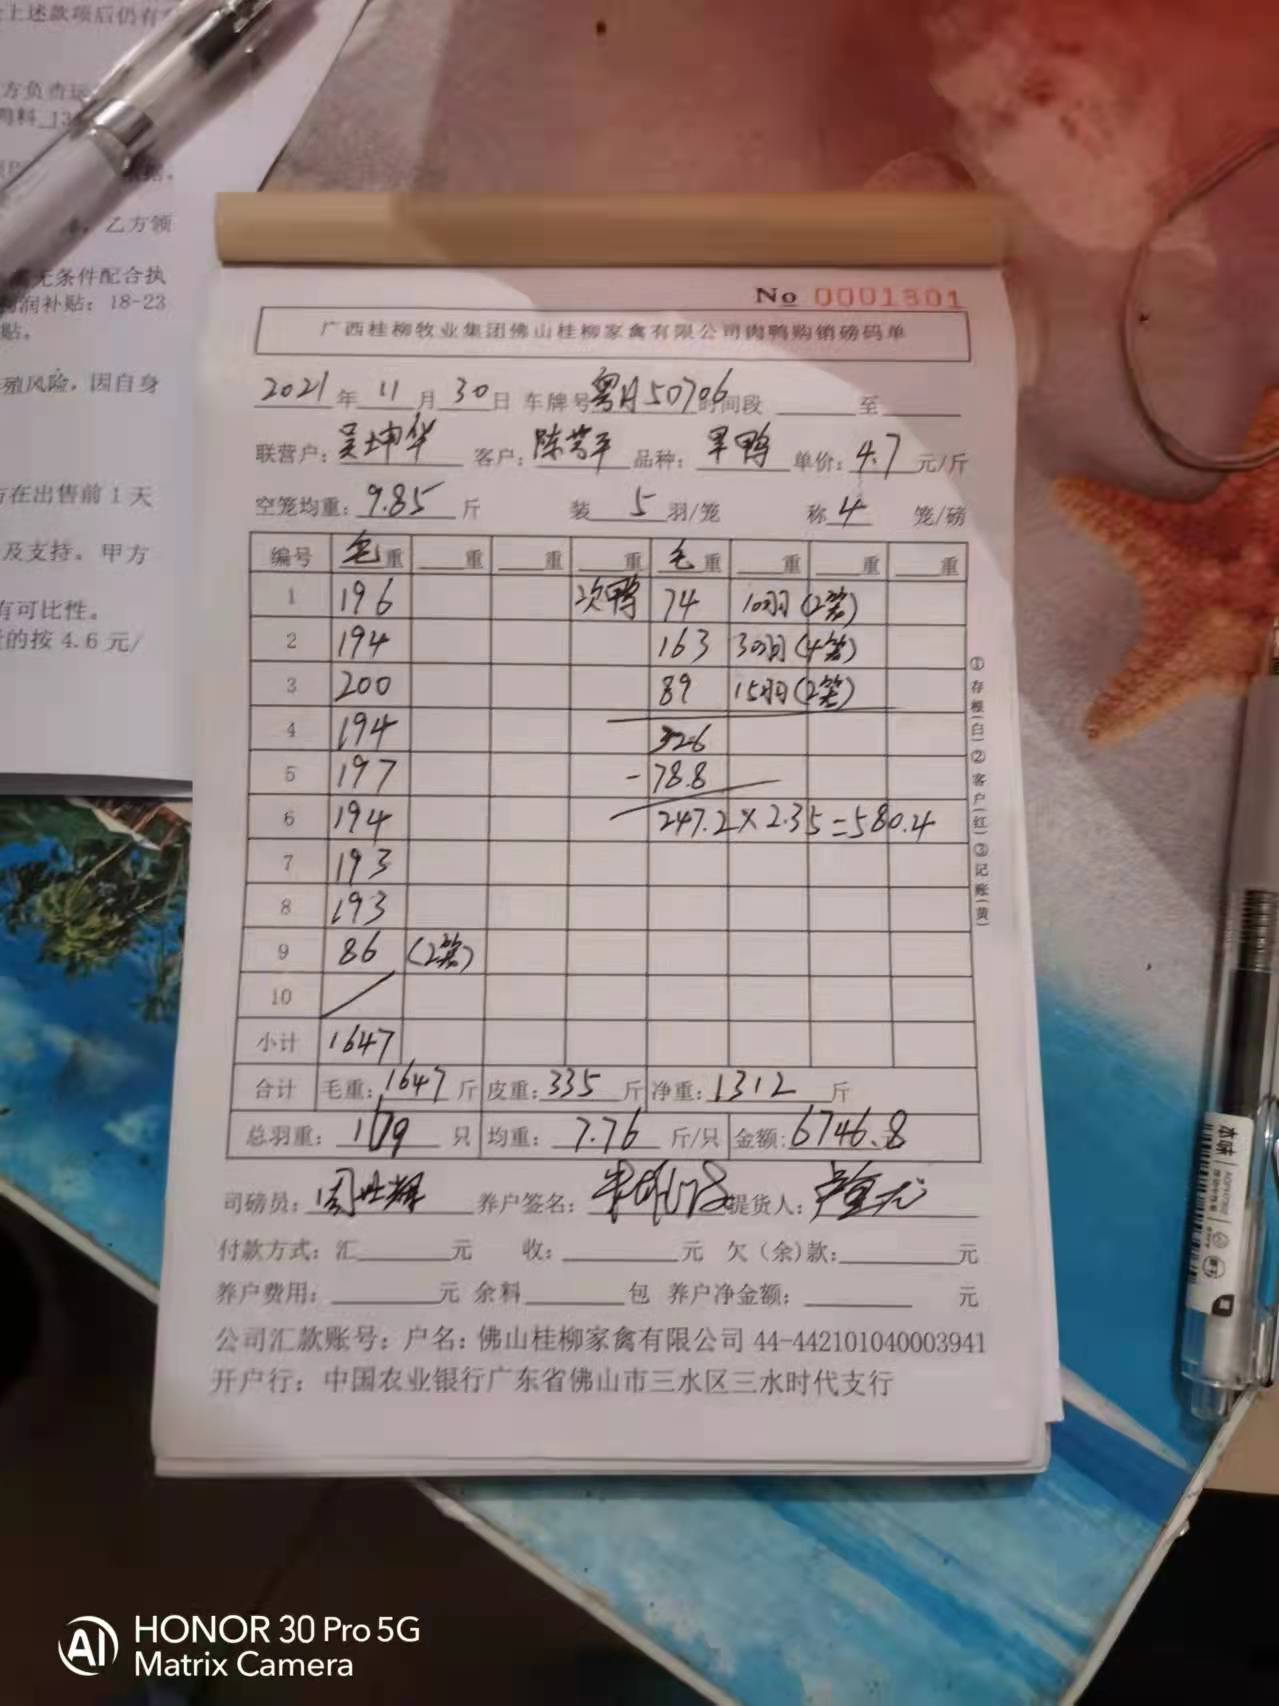 上述款项后仍有
方负责运
鸭料 13
乙方领
无条件配合执
利润补贴：18-23
贴。
殖风险，因自身
在出售前1天
及支持。甲方
有可比性。
的按4.6元/
No 0001301
广西桂柳牧业集团佛山桂柳家禽有限公司肉鸭购销磅码单
2021年11月30日 车牌号粤A50706时间段 至
联营户：吴坤华 客户：陈芳平 品种：旱鸭 单价：4.7元/斤
空笼均重：9.85斤 装5羽/笼 称4笼/磅
编号 毛重 重 重 重 毛重 重 重 重
1 196 次鸭 74 10羽(2笼)
2 194 163 30羽(4笼)
3 200 89 15羽(2笼)
4 194 326
5 197 -78.8
6 194 247.2×2.35=580.4
7 193
8 193
9 86 (2笼)
10
小计 1647
合计 毛重：1647斤 皮重：335斤 净重：1312斤
总羽重：169只 均重：7.76斤/只 金额：6746.8
司磅员：周世辉 养户签名： 提货人：
付款方式：汇 元 收： 元 欠（余）款： 元
养户费用： 元 余料 包 养户净金额： 元
公司汇款账号：户名：佛山桂柳家禽有限公司 44-442101040003941
开户行：中国农业银行广东省佛山市三水区三水时代支行
①存根(白)②客户(红)③记账(黄)
AI HONOR 30 Pro 5G
Matrix Camera